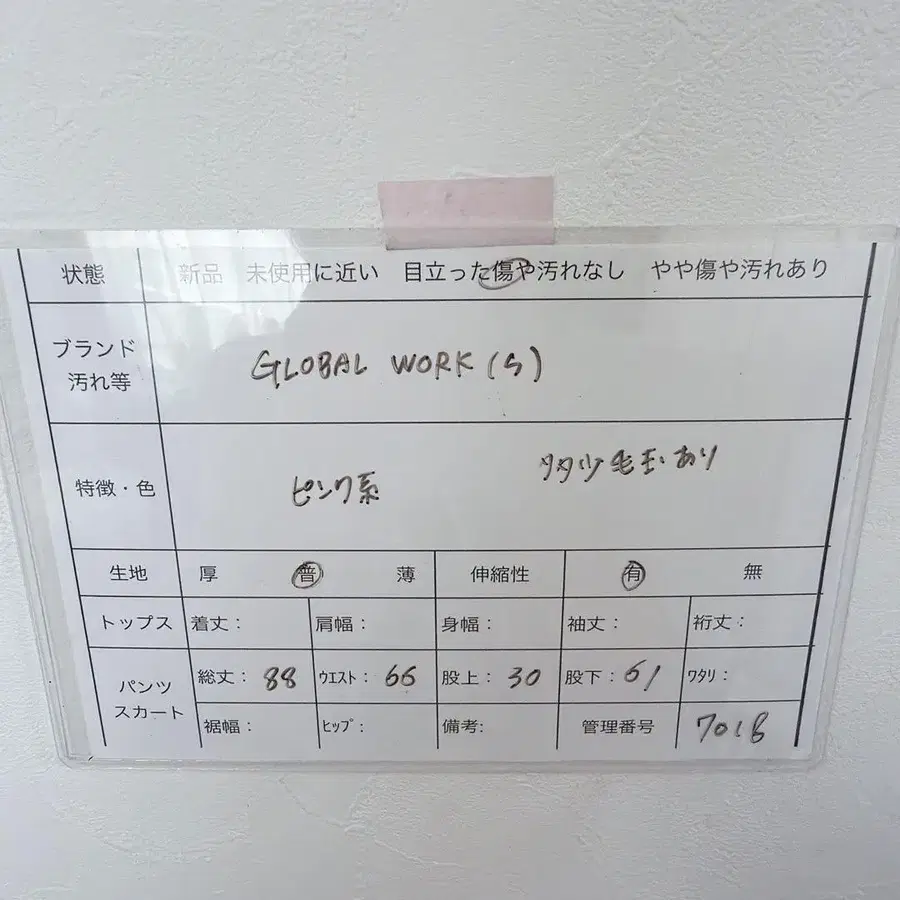 状態 新品 未使用に近い 目立った傷や汚れなし やや傷や汚れあり
ブランド
汚れ等
GLOBAL WORK (S)
特徴・色
ピンク系
多少毛玉あり
生地 厚 普 薄 伸縮性 有 無
トップス 着丈: 肩幅: 身幅: 袖丈: 裄丈:
パンツ
スカート
総丈: 88 ウエスト: 66 股上: 30 股下: 61 ワタリ:
裾幅: ヒップ: 備考: 管理番号 701B